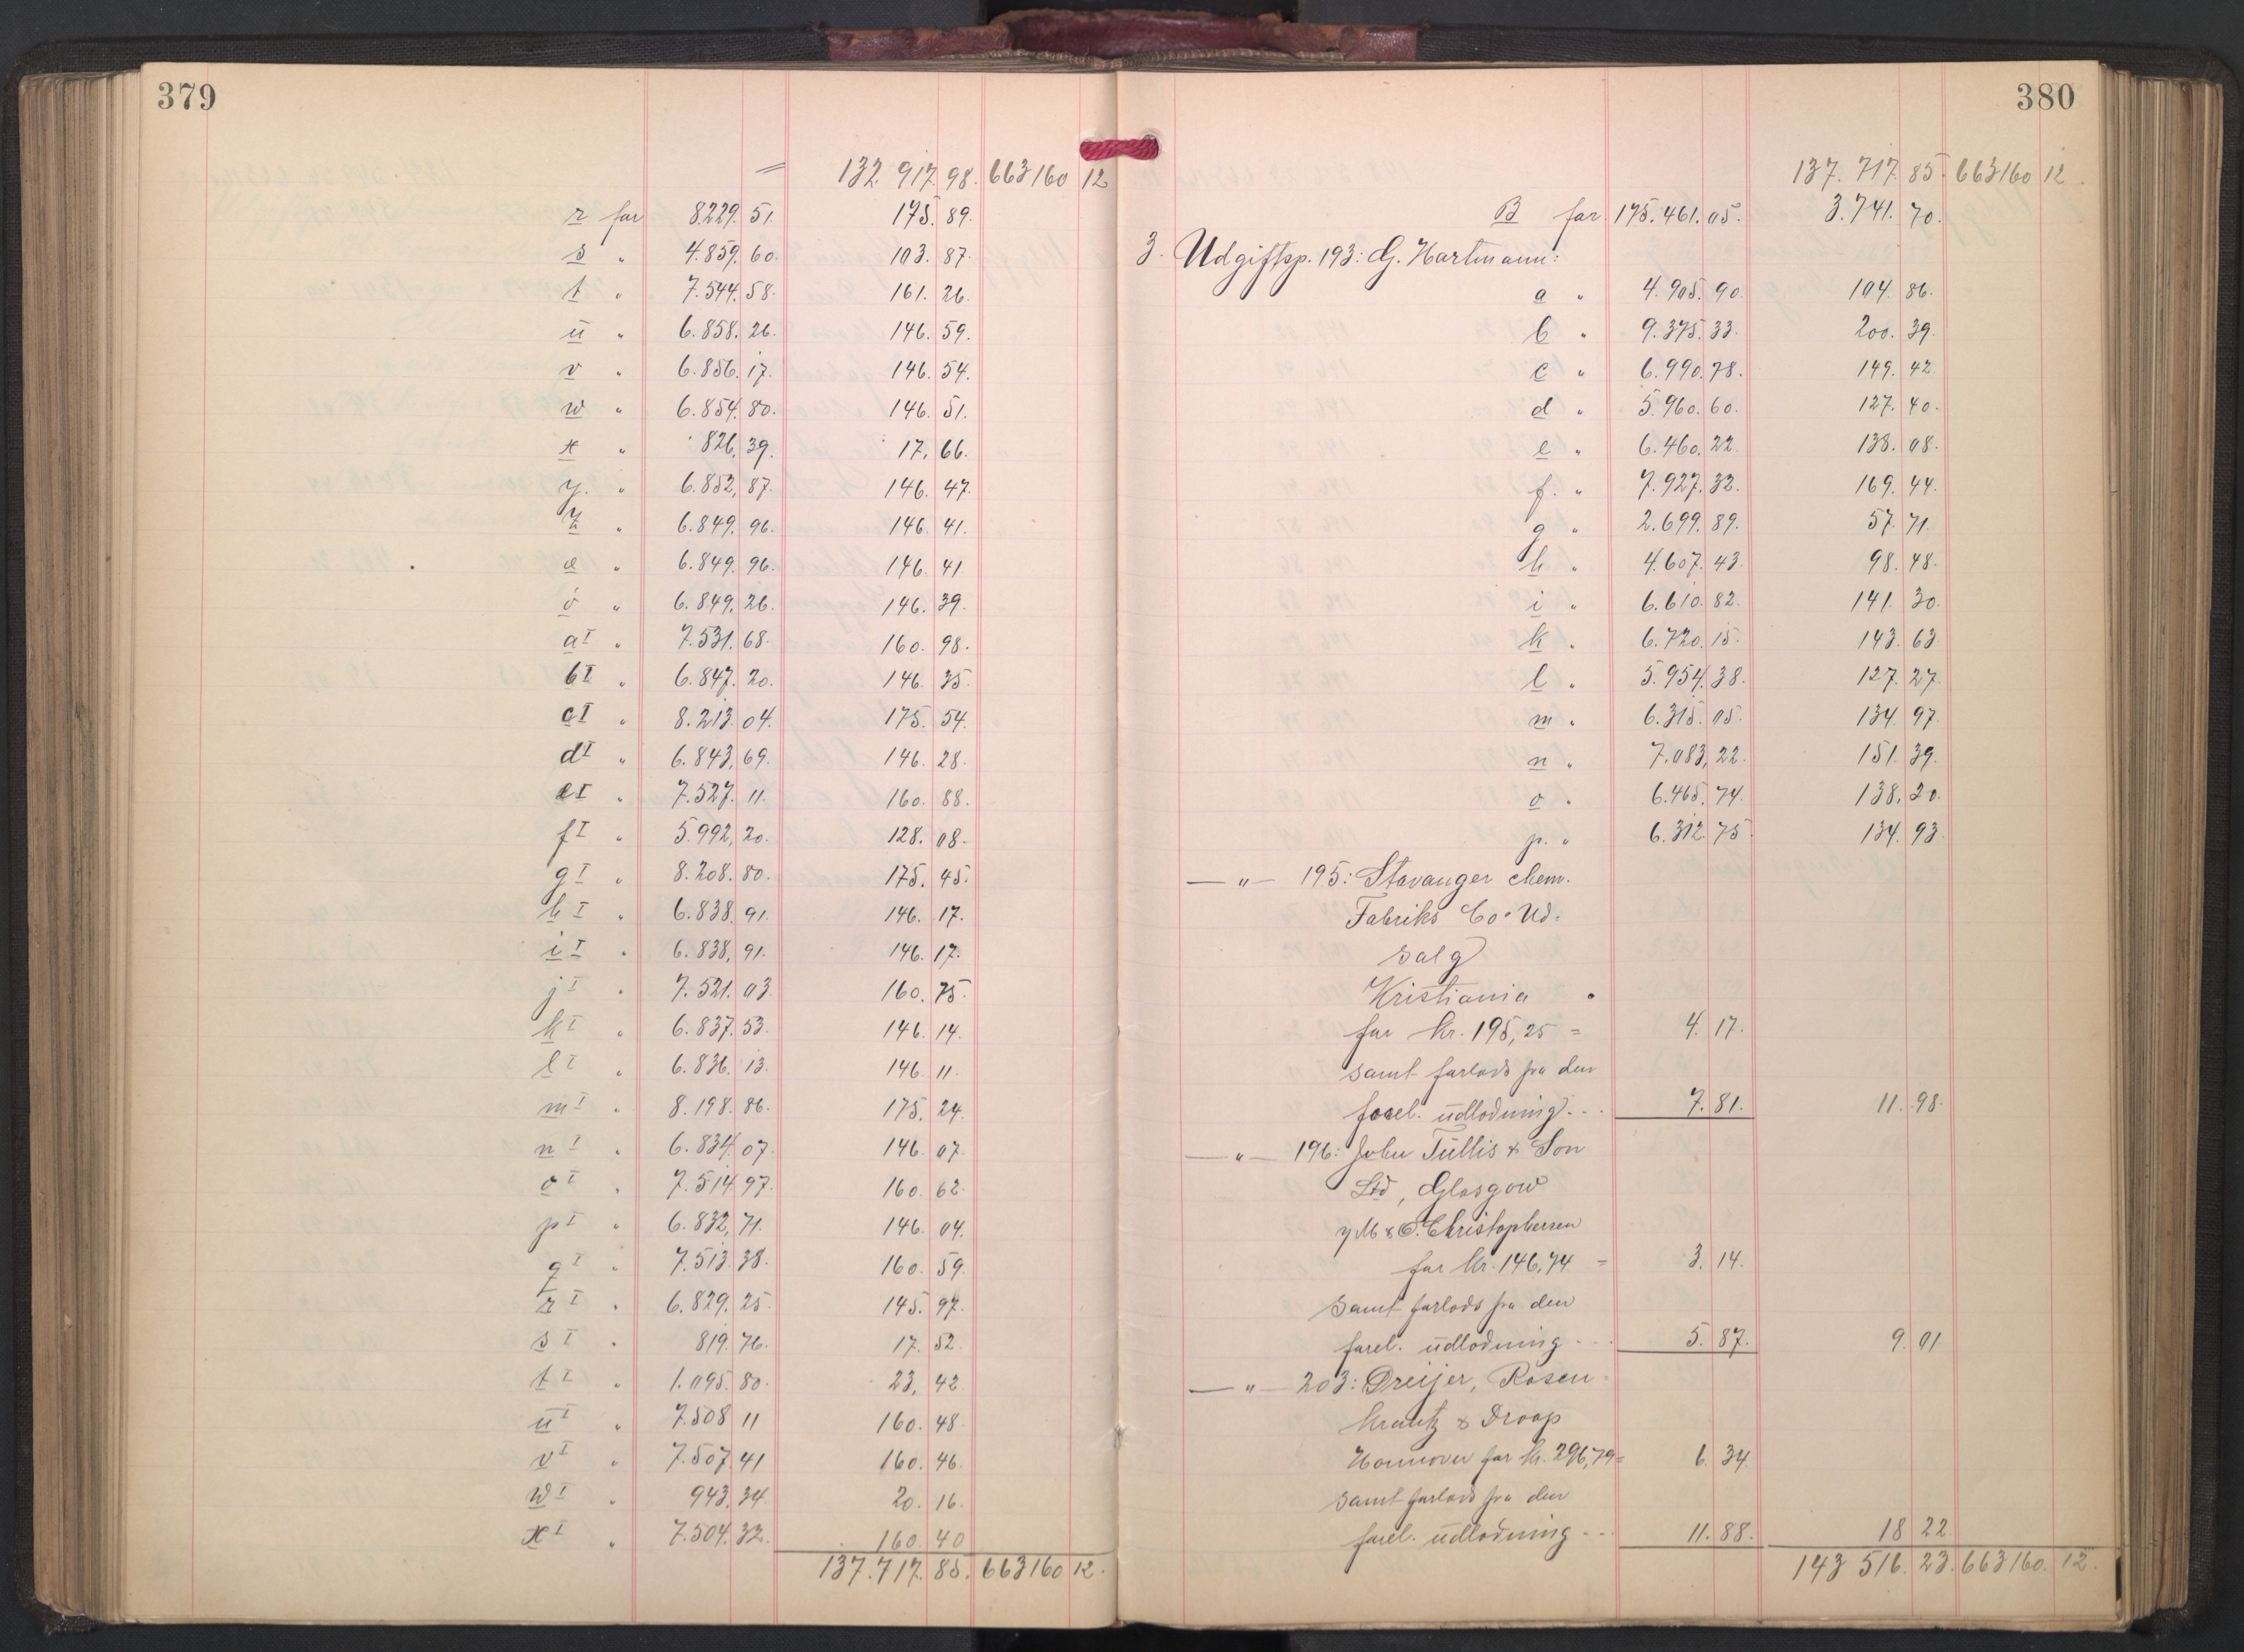 379
= 132 917. 98. 663160 12
r for 8229. 51. 175. 89.
s " 4.859. 60. 103. 87.
t " 7.544. 58. 161. 26.
u " 6.858. 26. 146. 59.
v " 6.856. 17. 146. 54.
w " 6.854. 80. 146. 51.
x " 826, 39. 17, 66.
y. " 6.852, 87. 146. 47.
z " 6.849. 96. 146. 41.
æ " 6.849. 96. 146. 41
ö " 6.849. 26. 146. 39.
aI " 7.531. 68. 160. 98.
bI " 6.847. 20. 146. 35.
cI " 8.213. 04. 175. 54.
dI " 6.843, 69. 146. 28.
eI " 7.527. 11. 160. 88.
fI " 5.992, 20. 128. 08.
gI " 8.208. 80. 175. 45.
hI " 6.838. 91. 146. 17.
iI " 6.838, 91. 146. 17.
jI " 7.521. 03. 160. 75.
kI " 6.837. 53. 146. 14.
lI " 6.836. 13. 146. 11.
mI " 8.198. 86. 175. 24.
nI " 6.834. 07. 146. 07.
oI " 7.514. 97. 160. 62.
pI " 6.832, 71. 146. 04.
qI " 7.513. 38. 160. 59.
rI " 6.829. 25. 145. 97.
sI " 819. 76. 17. 52.
tI " 1.095. 80. 23, 42.
uI " 7.508 11 160. 48.
vI " 7.507. 41 160. 46.
wI " 943. 34. 20. 16.
xI " 7.504. 32. 160. 40
137.717. 85. 663160 12.
380
137. 717. 85. 663160 12.
B for 175.461. 05. 3.741. 70.
3. Udgiftsp. 193: G. Hartmann:
a " 4.905. 90. 104. 86.
b " 9.375. 33. 200. 39.
c " 6.990. 78. 149. 42.
d " 5.960. 60. 127. 40.
e " 6.460. 22. 138. 08.
f. " 7.927. 32. 169. 44.
g " 2.699. 89. 57. 71.
h " 4.607. 43. 98. 48.
i " 6.610. 82. 141. 30.
k " 6.720. 15. 143. 63.
l " 5.954. 38. 127. 27.
m " 6.315. 05. 134. 97.
n " 7.083, 22. 151. 39.
o " 6.465. 74. 138, 20.
p. " 6.312. 75. 134. 93.
— " — 195: Stavanger chem.
Fabriks Co. Ud-
salg
Kristiania
for kr. 195,25 = 4. 17.
samt forlods fra den
forel. udlodning - - 7. 81. 11. 98.
— " — 196: John Tullis & Son
Ltd, Glasgow
v/ M & O. Christophersen
for kr. 146,74 = 3. 14.
samt forlods fra den
forel. udlodning - - 5. 87. 9. 01
— " — 203: Dreijer, Rosen-
krantz & Droop
Hannover for kr. 296,79 = 6. 34
samt forlods fra den
forel. udlodning - - 11. 88. 18 22
143 516. 23. 663160. 12.